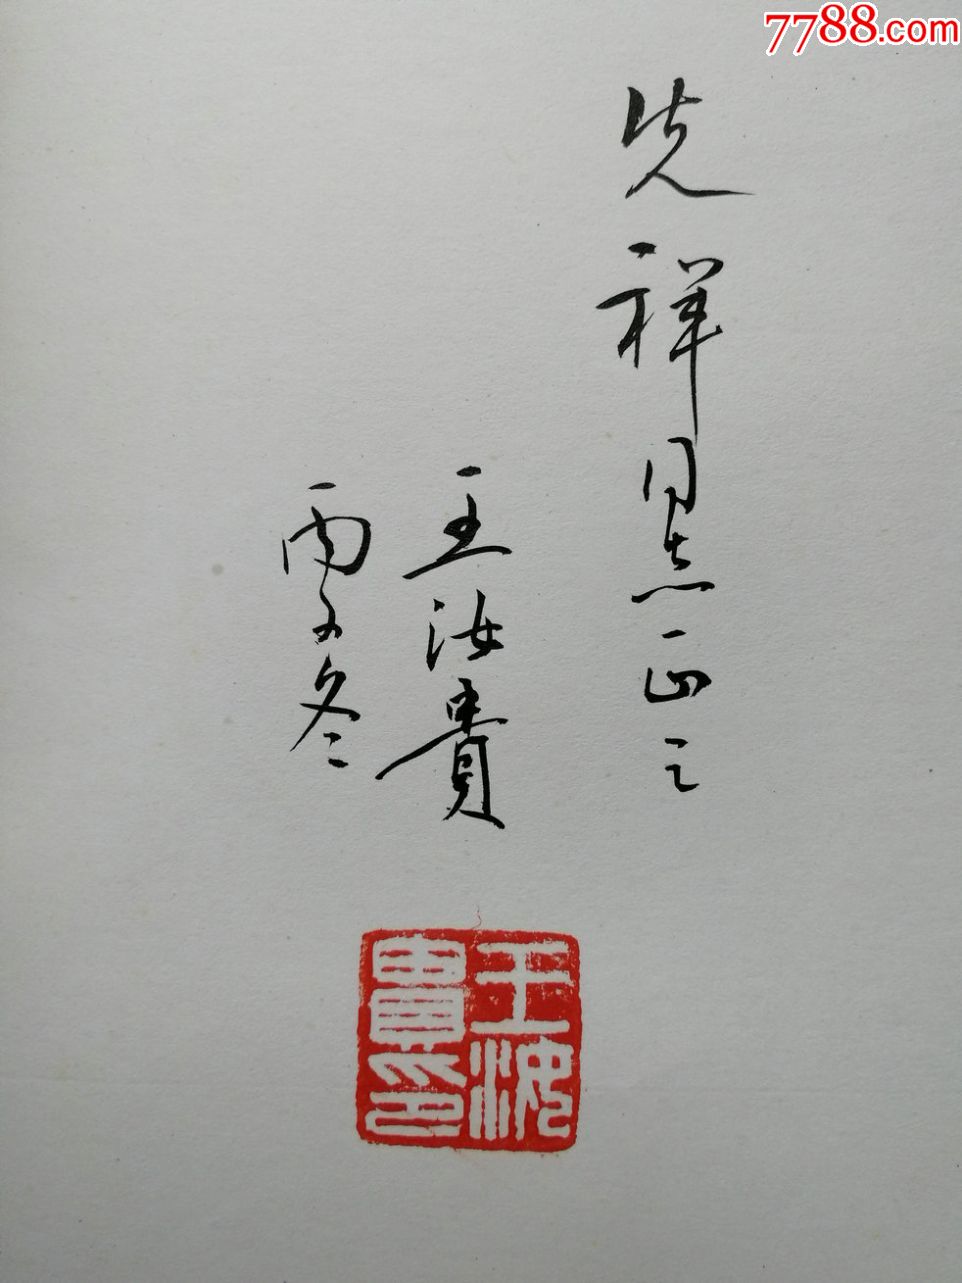 7788.com
先祥同志正之
王汝贵
丙子冬
王汝貴印